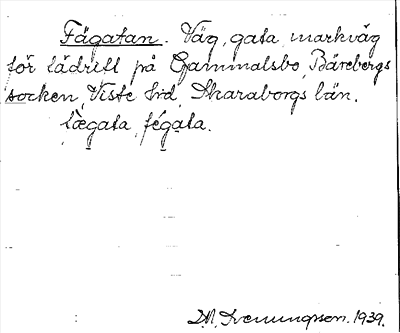 Fägatan. Väg, gata markväg
för lädrift på Gammalsbo, Bärebergs
socken, Viste hd, Skaraborgs län.
lægata, fégata.
D.N. Svenungsson. 1939.